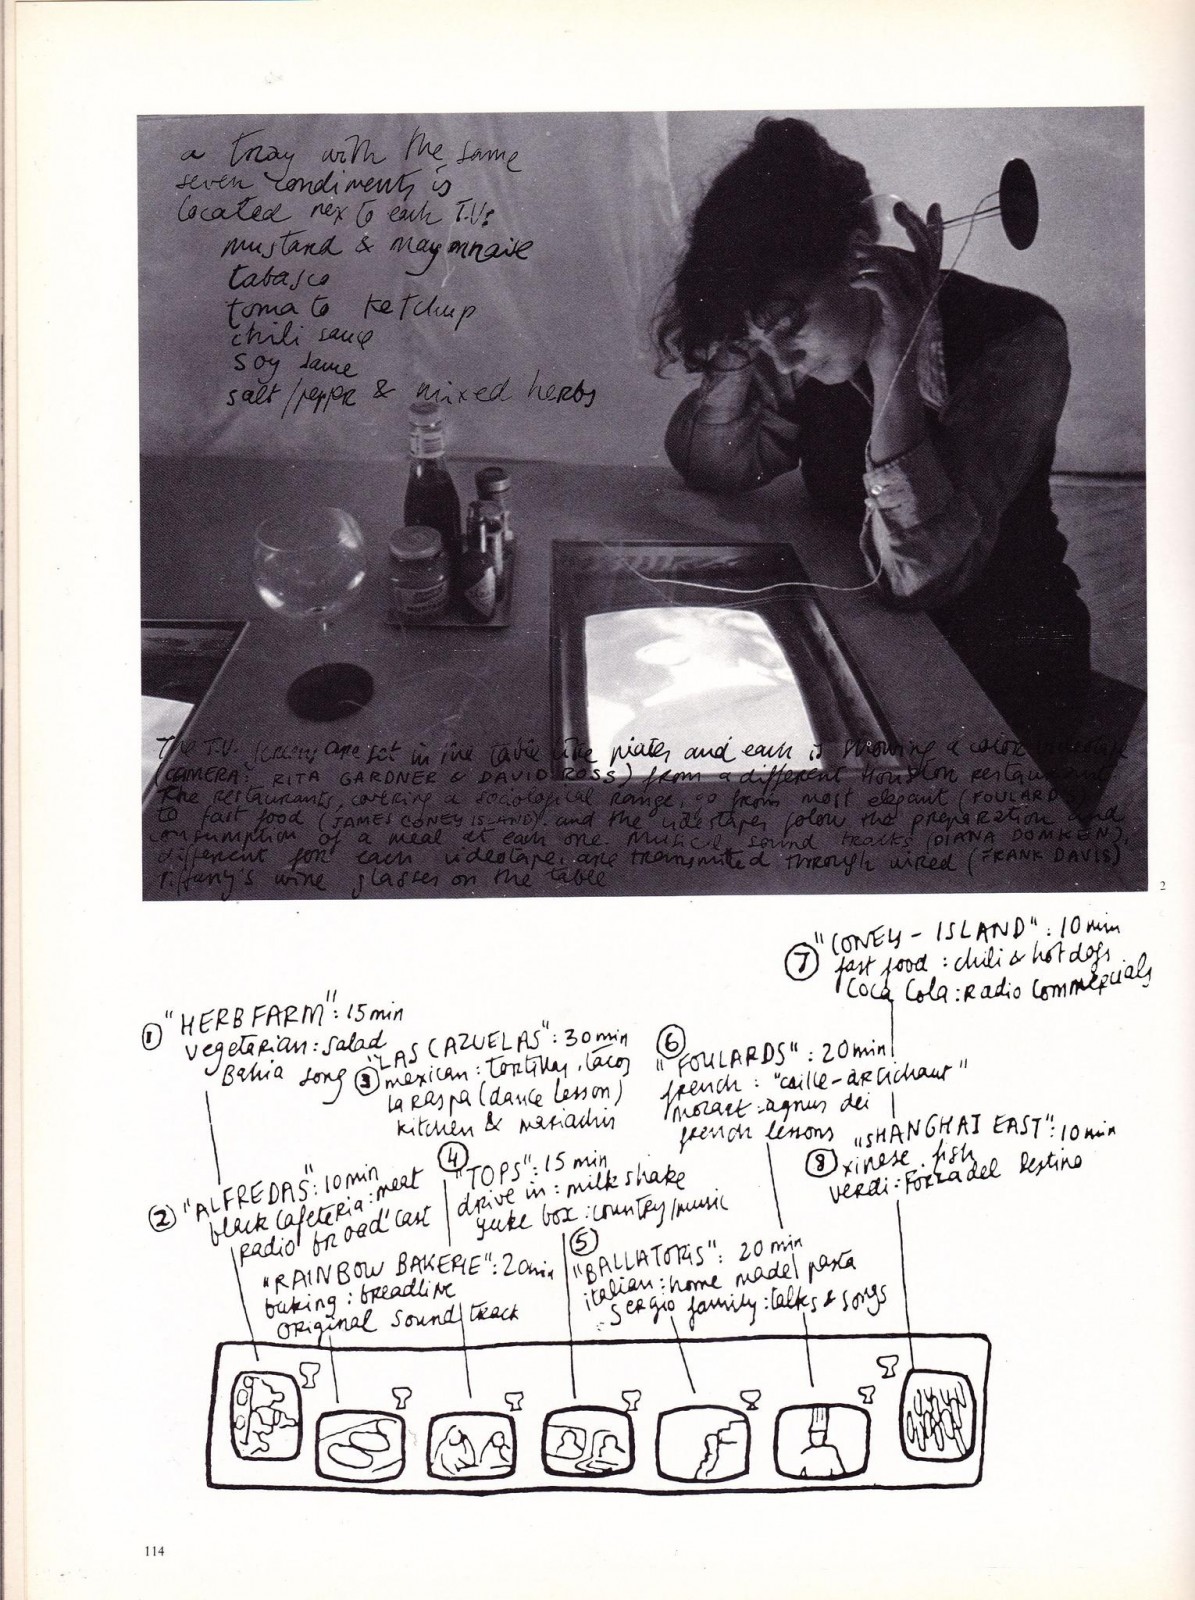 a tray with the same
seven condiments is
located nex to each T.V:
mustard & mayonnaise
tabasco
tomato ketchup
chili sauce
soy sauce
salt/pepper & mixed herbs
The T.V. screens are set in the table like plates and each is showing a color videotape
(CAMERA: RITA GARDNER & DAVID ROSS) from a different Houston restaurant.
The restaurants, covering a sociological range, go from most elegant (FOULARDS)
to fast food (JAMES CONEY ISLAND) and the videotapes folow the preparation and
consumption of a meal at each one. Musical sound tracks (DIANA DOMKEN),
different for each videotape, are transmitted through wired (FRANK DAVIS)
Tiffany's wine glasses on the table
2
⑦ "CONEY-ISLAND": 10 min
fast food: chili & hot dogs
Coca Cola: Radio Commercials
① "HERBFARM": 15 min
vegetarian: salad
Bahia song
③ "LAS CAZUELAS": 30 min
mexican: tortillas, tacos
la raspa (dance lesson)
kitchen & mariachis
⑥ "FOULARDS": 20 min
french: "caille-artichaut"
mozart: agnus dei
french lessons
⑧ "SHANGHAI EAST": 10 min
xinese fish
verdi: Forza del Destino
② "ALFREDAS": 10 min
black cafeteria: meat
radio broad cast
④ "TOPS": 15 min
drive in: milk shake
yuke box: country/music
"RAINBOW BAKERIE": 20 min
baking: breadline
original sound track
⑤ "BALLATORIS": 20 min
italian: home made pasta
Sergio family: talks & songs
114